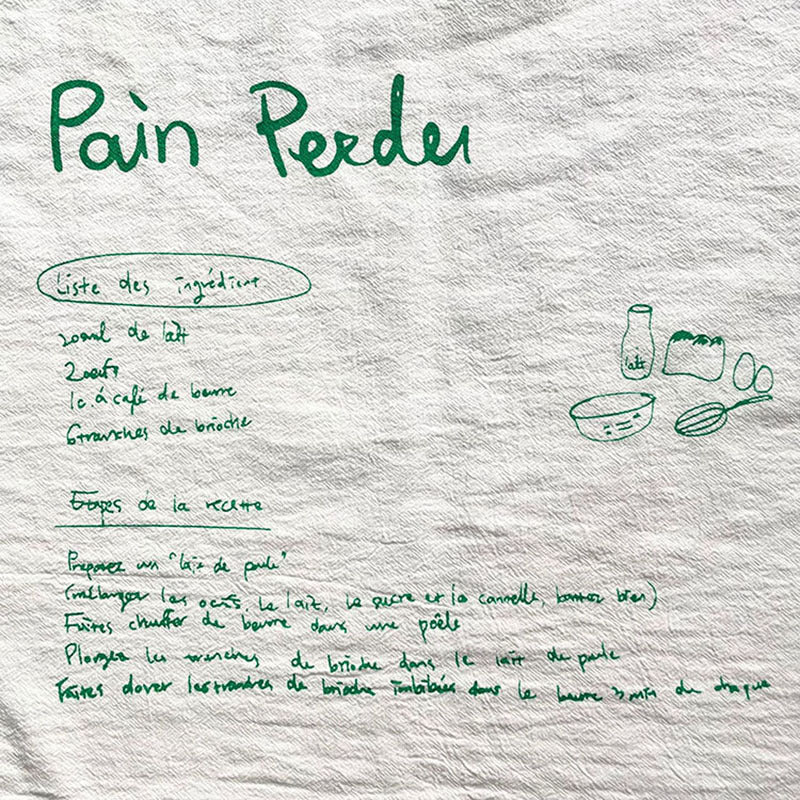 Pain Perdu
Liste des ingrédient
200ml de lait
2oeufs
1c.à café de beurre
6tranches de brioche
lait
Etapes de la recette
Préparez un "lait de poule"
(mélanger les oeufs, le lait, le sucre et la cannelle, battez bien)
Faites chauffer de beurre dans une poêle
Plongez les tranches de brioche dans le lait de poule
Faites dorer les tranches de brioche imbibées dans le beurre 3 min de chaque